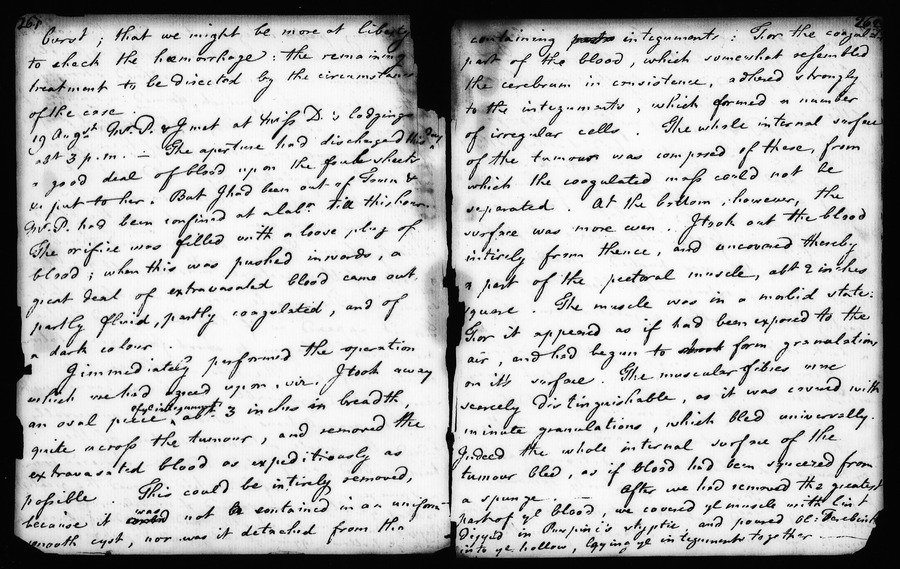 261
burst ; that we might be more at liberty
to check the hœmorrhage : the remaining
treatment to be directed by the circumstances
of the case
19 Augst Mr. P. & I met at Miss D.'s lodgings
abt 3 p.m. — The aperture had discharged this day
a good deal of blood upon the sheets
&c put to her. But I had been out of Town &
Mr. P. had been confined at a labr. till this hour.
The orifice was filled with a loose plug of
blood ; when this was pushed inwards, a
great deal of extravasated blood came out,
partly fluid, partly coagulated, and of
a dark colour.
I immediately performed the operation
which we had agreed upon, viz. I took away
an oval piece of ye integumts abt. 3 inches in breadth,
quite across the tumour, and removed the
extravasated blood as expeditiously as
possible. This could be intirely removed,
because it was not contained in an uniform
smooth cyst, nor was it detached from the
262
containing integuments : For the coagulated
part of the blood, which somewhat resembled
the cerebrum in consistence, adhered strongly
to the integuments, which formed a number
of irregular cells. The whole internal surface
of the tumour was composed of these, from
which the coagulated mass could not be
separated. At the bottom, however, the
surface was more even. I took out the blood
intirely from thence, and uncovered thereby
a part of the pectoral muscle, abt 2 inches
square. The muscle was in a morbid state :
For it appeared as if had been exposed to the
air, and had begun to form granulations
on it's surface. The muscular fibres were
scarcely distinguishable, as it was covered with
minute granulations, which bled universally.
Indeed the whole internal surface of the
tumour bled, as if blood had been squeezed from
a spunge. — After we had removed the greatest
part of ye blood, we covered ye muscle with lint
dipped in Ruspini's styptic, and poured Ol: Terebinth
into ye hollow, laying ye integuments together —